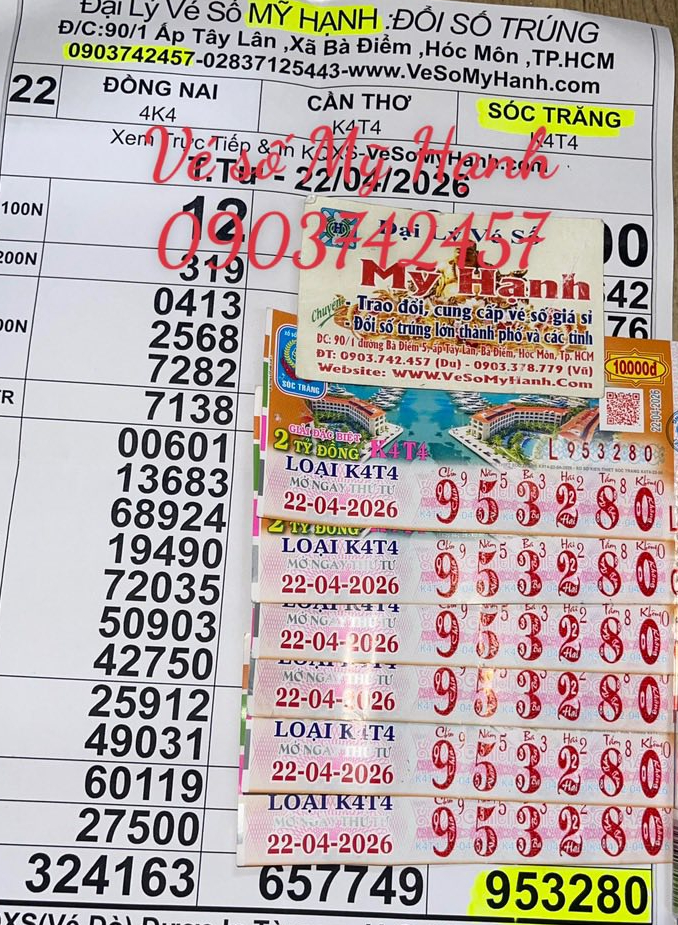 Đại Lý Vé Số MỸ HẠNH :ĐỔI SỐ TRÚNG
Đ/C:90/1 Ấp Tây Lân ,Xã Bà Điểm ,Hóc Môn ,TP.HCM
0903742457-02837125443-www.VeSoMyHanh.com
22 ĐỒNG NAI CẦN THƠ SÓC TRĂNG
4K4 K4T4 K4T4
Xem Trực Tiếp & In KQXS-VeSoMyHanh.com
Vé số Mỹ Hạnh
T.Tư - 22/04/2026
0903742457
100N 12 00
200N 319 642
0413 76
2568
7282
7138
00601
13683
68924
19490
72035
50903
42750
25912
49031
60119
27500
324163 657749 953280
Đại Lý Vé Số
Mỹ Hạnh
Chuyên:
- Trao đổi, cung cấp vé số giá sỉ
- Đổi số trúng lớn thành phố và các tỉnh
ĐC: 90/1 đường Bà Điểm 5, ấp Tây Lân, Bà Điểm, Hóc Môn, Tp. HCM
ĐT: 0903.742.457 (Du) - 0903.378.779 (Vũ)
Website: WWW.VeSoMyHanh.Com
SÓC TRĂNG
10000đ
22-04-2026
GIẢI ĐẶC BIỆT
2 TỶ ĐỒNG K4T4
L 953280
LOẠI K4T4
MỞ NGÀY THỨ TƯ
22-04-2026
953280
2 TỶ ĐỒNG
LOẠI K4T4
MỞ NGÀY THỨ TƯ
22-04-2026
953280
LOẠI K4T4
MỞ NGÀY THỨ TƯ
22-04-2026
953280
MỞ NGÀY THỨ TƯ
22-04-2026
953280
LOẠI K4T4
MỞ NGÀY THỨ TƯ
22-04-2026
953280
LOẠI K4T4
MỞ NGÀY THỨ TƯ
22-04-2026
953280